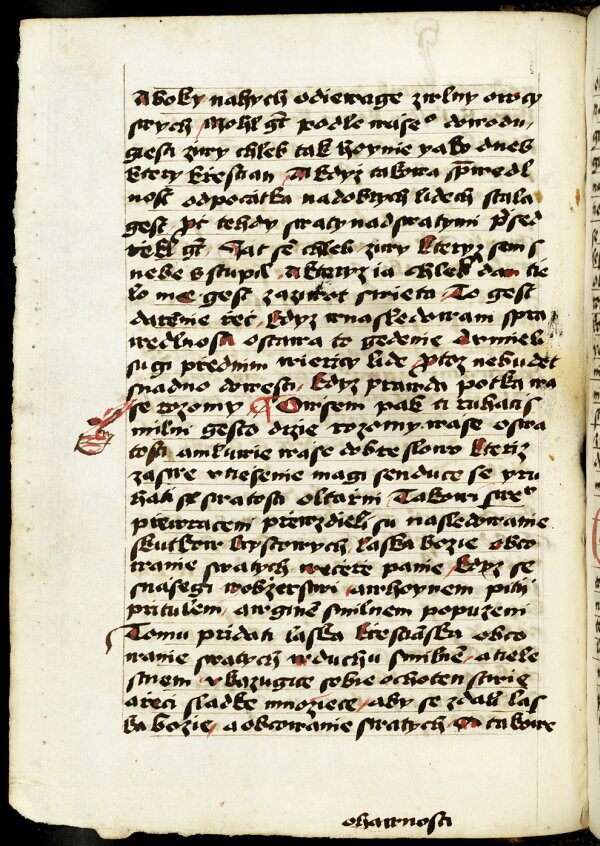 A boky nahych odiewage zwlny owcy
swych / Mohl gt podle wase° dowodu
giesti ziwy chleb tak hoynie yako dneb
ktery krestian / A kdyz takowa sprwedl
nost odpocatka nadobrych lidech stala
gest Pt tehdy swaty nadswatymi Psed
rekl gt / Jat sem chleb ziwy kteryz sem s
nebe sstupil / A kteryz ia chleb dam tie
lo me gest zaziwot swieta / To gest
darémie rec / kdyz wnasledowani spra
wedlnosti ostawa to gedenie drimieb
sugi prednim wiericy lide Protoz nebudet
snadno dowesti / kdyz prawda potkawa
se rozomy / Owsem pak ti ruhacis
milni gesto drzie rozomy wase oswa
tosti amluwie wase dobre slowo kteriz
zastre wtiesenie magi senduce se y ru
hati se swatosti oltarni Takowi swe°
prewraceni przewzdieli su nasledowanie
skutkow krystowych / laska bozie obco
wanie swatych weczere panie / kdyz se
snasegi wobzerstwi / awhoynem piti
pritulem / awginem smilnem popuzeni
Tomu pridati laska krestianska obco
wanie swatych wduchu smilnem / atiele
snem / vkazugice sobie ochoten stwie
areci sladke mnoziece / aby se zdali las
ka bozie / a obcowanie swatych / Tu takowe
oharnosti